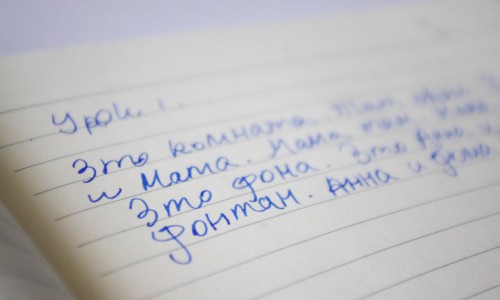 Урок 1.
Это комната. Там
и мама. Мама там.
Это фона. Это
Фонтан. Анна и